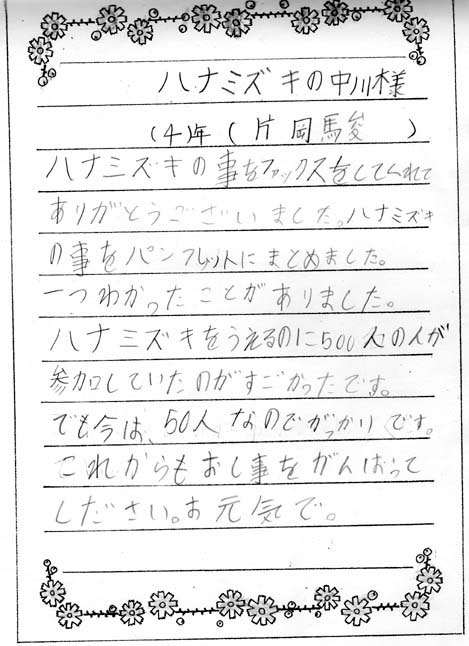 ハナミズキの中川様
(4)年(片岡駿)
ハナミズキの事をファックスをしてくれて
ありがとうございました。ハナミズキ
の事をパンフレットにまとめました。
一つわかったことがありました。
ハナミズキをうえるのに500人の人が
参加していたのがすごかったです。
でも今は、50人なのでがっかりです。
これからもおし事をがんばって
しださい。お元気で。